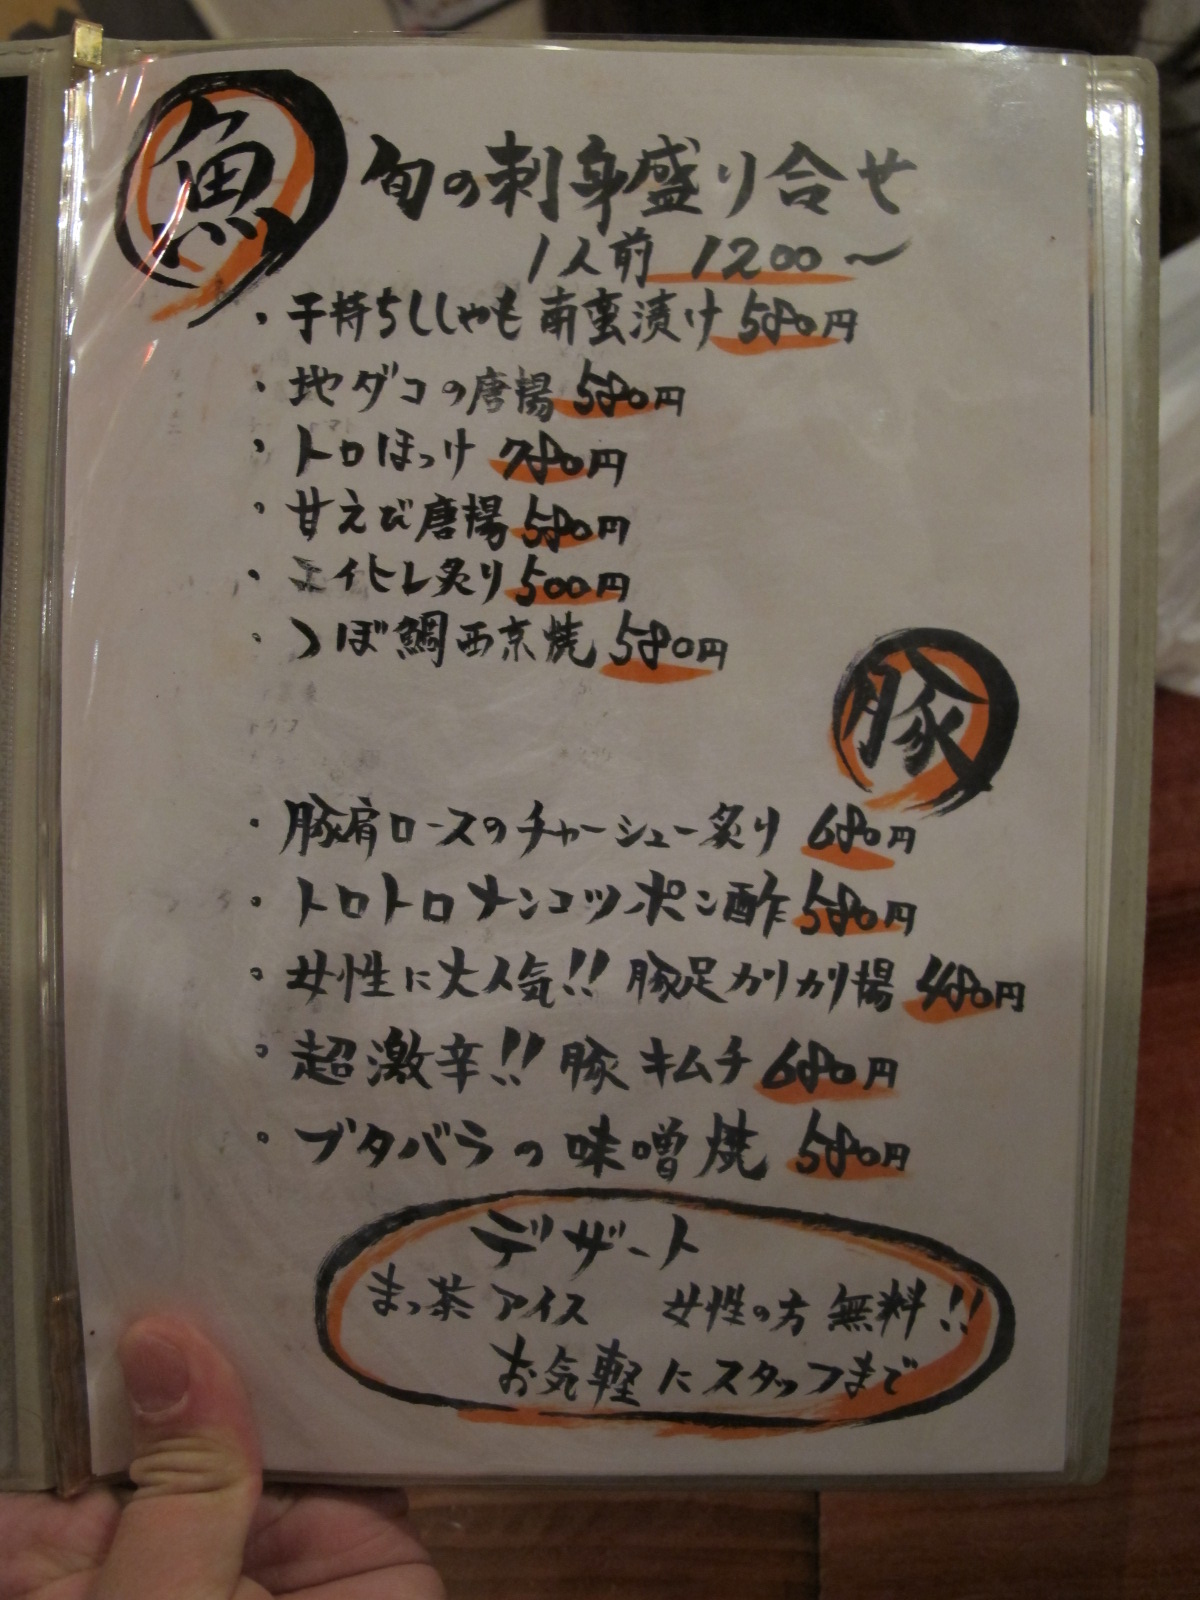 魚
旬の刺身盛り合せ
1人前 1200〜
・子持ちししゃも南蛮漬け 580円
・地ダコの唐揚 580円
・トロほっけ 780円
・甘えび唐揚 580円
・エイヒレ炙り 500円
・つぼ鯛西京焼 580円
豚
・豚肩ロースのチャーシュー炙り 680円
・トロトロナンコツポン酢 580円
・女性に大人気!! 豚足カリカリ揚 480円
・超激辛!! 豚キムチ 680円
・ブタバラの味噌焼 580円
デザート
まっ茶アイス 女性の方無料!!
お気軽にスタッフまで